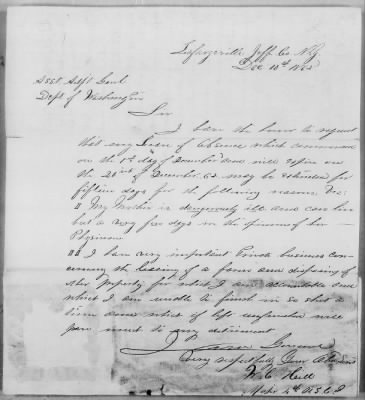 Lafargeville, Jeff. Co. N.Y.
Dec 10th
Asst. Adjt. Genl
Dept of Washington
Sir
I have the honor to request
that my Leave of Absence which commenced
on the 1st day of December and will expire on
the 21st of December 62 may be extended for
fifteen days for the following reasons, Viz:
I. My Mother is dangerously ill and can live
but a very few days in the opinion of her
Physician
II I have very important Private business con-
cerning the leasing of a farm and disposing of
other Property for which I am accountable and
which I am unable to finish in so short a
time and which if left unfinished will
prove much to my detriment
I am General
very respectfully Your Obt
W. C.